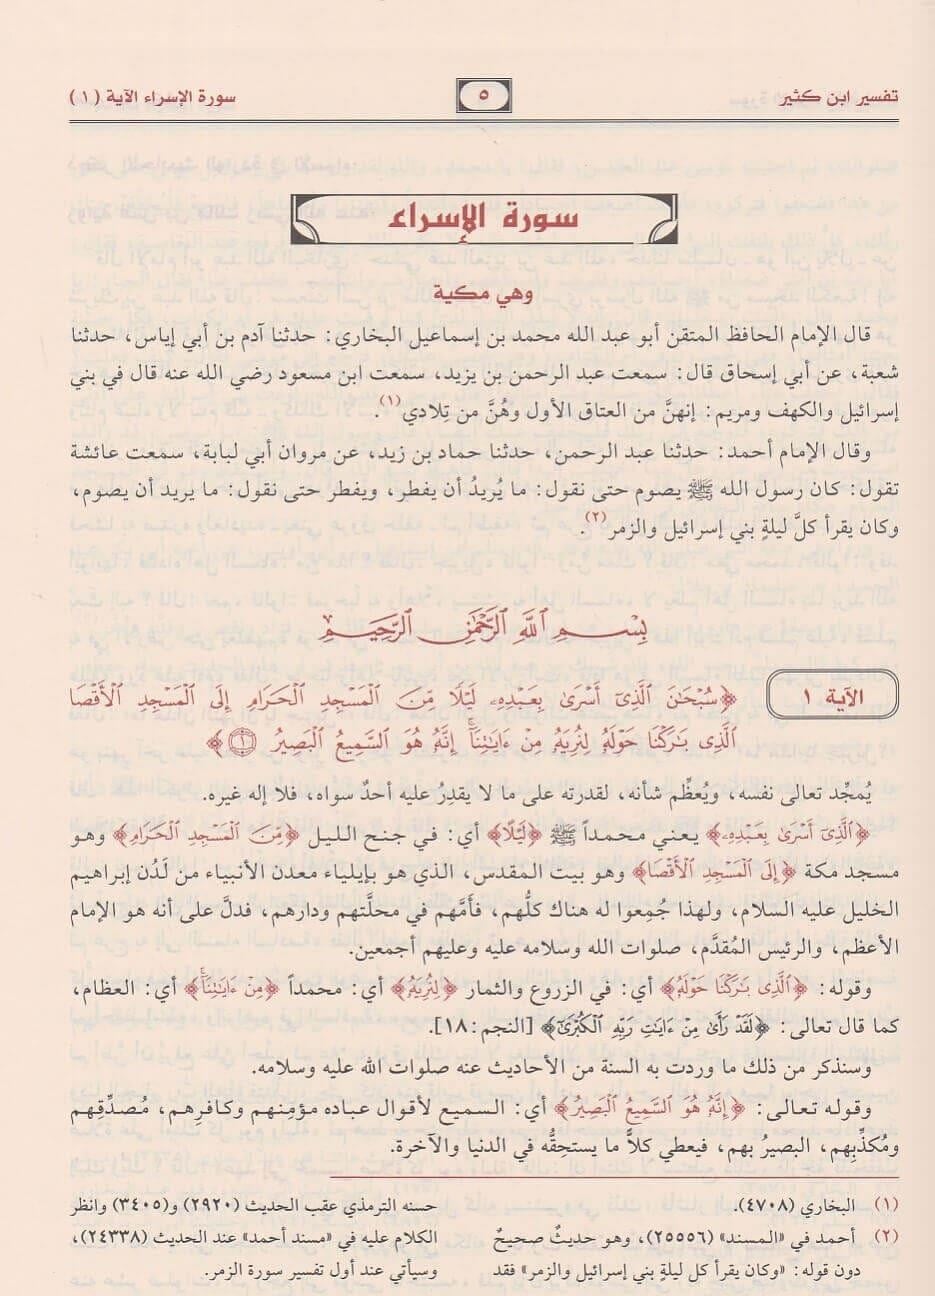 تفسير ابن كثير
٥
سورة الإسراء الآية (١)
سورة الإسراء
وهي مكية
قال الإمام الحافظ المتقن أبو عبد الله محمد بن إسماعيل البخاري: حدثنا آدم بن أبي إياس، حدثنا
شعبة، عن أبي إسحاق قال: سمعت عبد الرحمن بن يزيد، سمعت ابن مسعود رضي الله عنه قال في بني
إسرائيل والكهف ومريم: إنهنَّ من العتاق الأول وهُنَّ من تِلادي(١).
وقال الإمام أحمد: حدثنا عبد الرحمن، حدثنا حماد بن زيد، عن مروان أبي لبابة، سمعت عائشة
تقول: كان رسول الله ﷺ يصوم حتى نقول: ما يُريدُ أن يفطر، ويفطر حتى نقول: ما يريد أن يصوم،
وكان يقرأ كلَّ ليلةٍ بني إسرائيل والزمر(٢).
بِسْمِ ٱللَّهِ ٱلرَّحْمَٰنِ ٱلرَّحِيمِ
الآية ١
﴿سُبْحَٰنَ ٱلَّذِىٓ أَسْرَىٰ بِعَبْدِهِۦ لَيْلًا مِّنَ ٱلْمَسْجِدِ ٱلْحَرَامِ إِلَى ٱلْمَسْجِدِ ٱلْأَقْصَا
ٱلَّذِى بَٰرَكْنَا حَوْلَهُۥ لِنُرِيَهُۥ مِنْ ءَايَٰتِنَآ ۚ إِنَّهُۥ هُوَ ٱلسَّمِيعُ ٱلْبَصِيرُ ١﴾
يُمجِّد تعالى نفسه، ويُعظِّم شأنه، لقدرته على ما لا يقدِرُ عليه أحدٌ سواه، فلا إله غيره.
﴿ٱلَّذِىٓ أَسْرَىٰ بِعَبْدِهِۦ﴾ يعني محمداً ﷺ ﴿لَيْلًا﴾ أي: في جنح الليل ﴿مِّنَ ٱلْمَسْجِدِ ٱلْحَرَامِ﴾ وهو
مسجد مكة ﴿إِلَى ٱلْمَسْجِدِ ٱلْأَقْصَا﴾ وهو بيت المقدس، الذي هو بإيلياء معدن الأنبياء من لَدُن إبراهيم
الخليل عليه السلام، ولهذا جُمِعوا له هناك كلُّهم، فأمَّهم في محلَّتهم ودارهم، فدلَّ على أنه هو الإمام
الأعظم، والرئيس المُقدَّم، صلوات الله وسلامه عليه وعليهم أجمعين.
وقوله: ﴿ٱلَّذِى بَٰرَكْنَا حَوْلَهُۥ﴾ أي: في الزروع والثمار ﴿لِنُرِيَهُۥ﴾ أي: محمداً ﴿مِنْ ءَايَٰتِنَآ﴾ أي: العظام،
كما قال تعالى: ﴿لَقَدْ رَأَىٰ مِنْ ءَايَٰتِ رَبِّهِ ٱلْكُبْرَىٰٓ﴾ [النجم: ١٨].
وسنذكر من ذلك ما وردت به السنة من الأحاديث عنه صلوات الله عليه وسلامه.
وقوله تعالى: ﴿إِنَّهُۥ هُوَ ٱلسَّمِيعُ ٱلْبَصِيرُ﴾ أي: السميع لأقوال عباده مؤمِنهم وكافرِهم، مُصدِّقِهم
ومُكذِّبِهم، البصيرُ بهم، فيعطي كلاًّ ما يستحِقُّه في الدنيا والآخرة.
(١) البخاري (٤٧٠٨).
(٢) أحمد في «المسند» (٢٥٥٥٦)، وهو حديثٌ صحيحٌ
دون قوله: «وكان يقرأ كل ليلةٍ بني إسرائيل والزمر» فقد
حسنه الترمذي عقب الحديث (٢٩٢٠) و(٣٤٠٥) وانظر
الكلام عليه في «مسند أحمد» عند الحديث (٢٤٣٣٨)،
وسيأتي عند أول تفسير سورة الزمر.